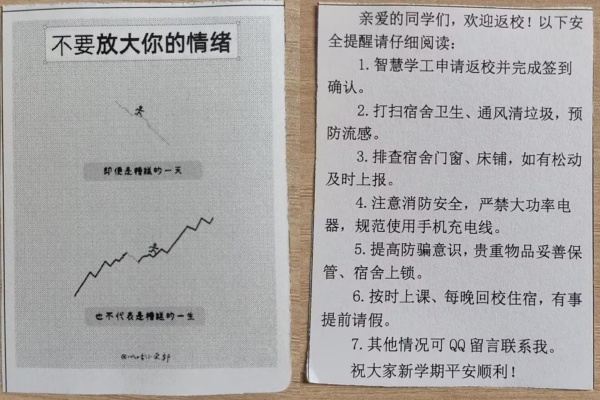 不要放大你的情绪
即便是糟糕的一天
也不代表是糟糕的一生
亲爱的同学们，欢迎返校！以下安
全提醒请仔细阅读：
1.智慧学工申请返校并完成签到
确认。
2.打扫宿舍卫生、通风清垃圾，预
防流感。
3.排查宿舍门窗、床铺，如有松动
及时上报。
4.注意消防安全，严禁大功率电
器，规范使用手机充电线。
5.提高防骗意识，贵重物品妥善保
管、宿舍上锁。
6.按时上课、每晚回校住宿，有事
提前请假。
7.其他情况可QQ留言联系我。
祝大家新学期平安顺利！